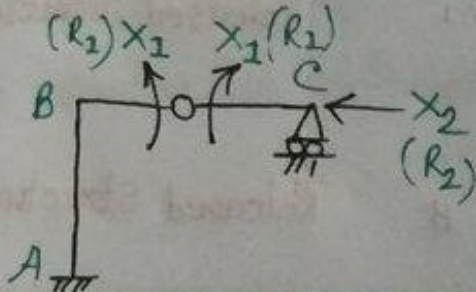 (R1) X1 X1 (R1)
B C X2
(R2)
A